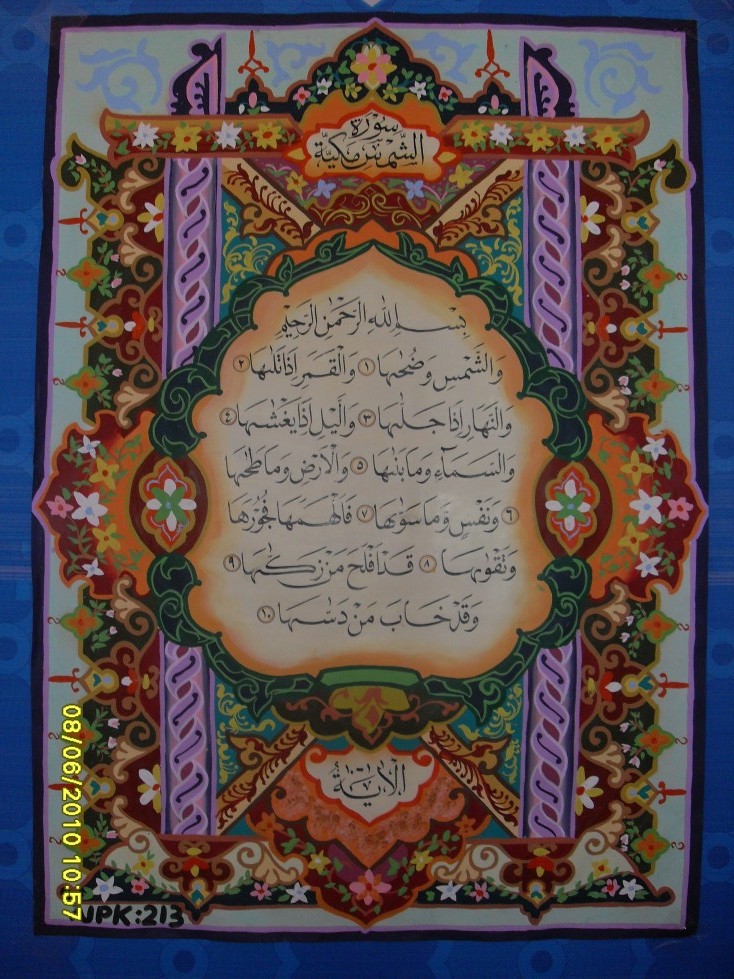 سورة
الشمس مكية
بسم الله الرحمن الرحيم
والشمس وضحىها ١ والقمر اذا تلىها ٢
والنهار اذا جلىها ٣ واليل اذا يغشىها ٤
والسماء وما بنىها ٥ والارض وما طحىها
٦ ونفس وما سوىها ٧ فالهمها فجورها
وتقوىها ٨ قد افلح من زكىها ٩
وقد خاب من دسىها ١٠
الاية
08/06/2010 10:57
JPK:213